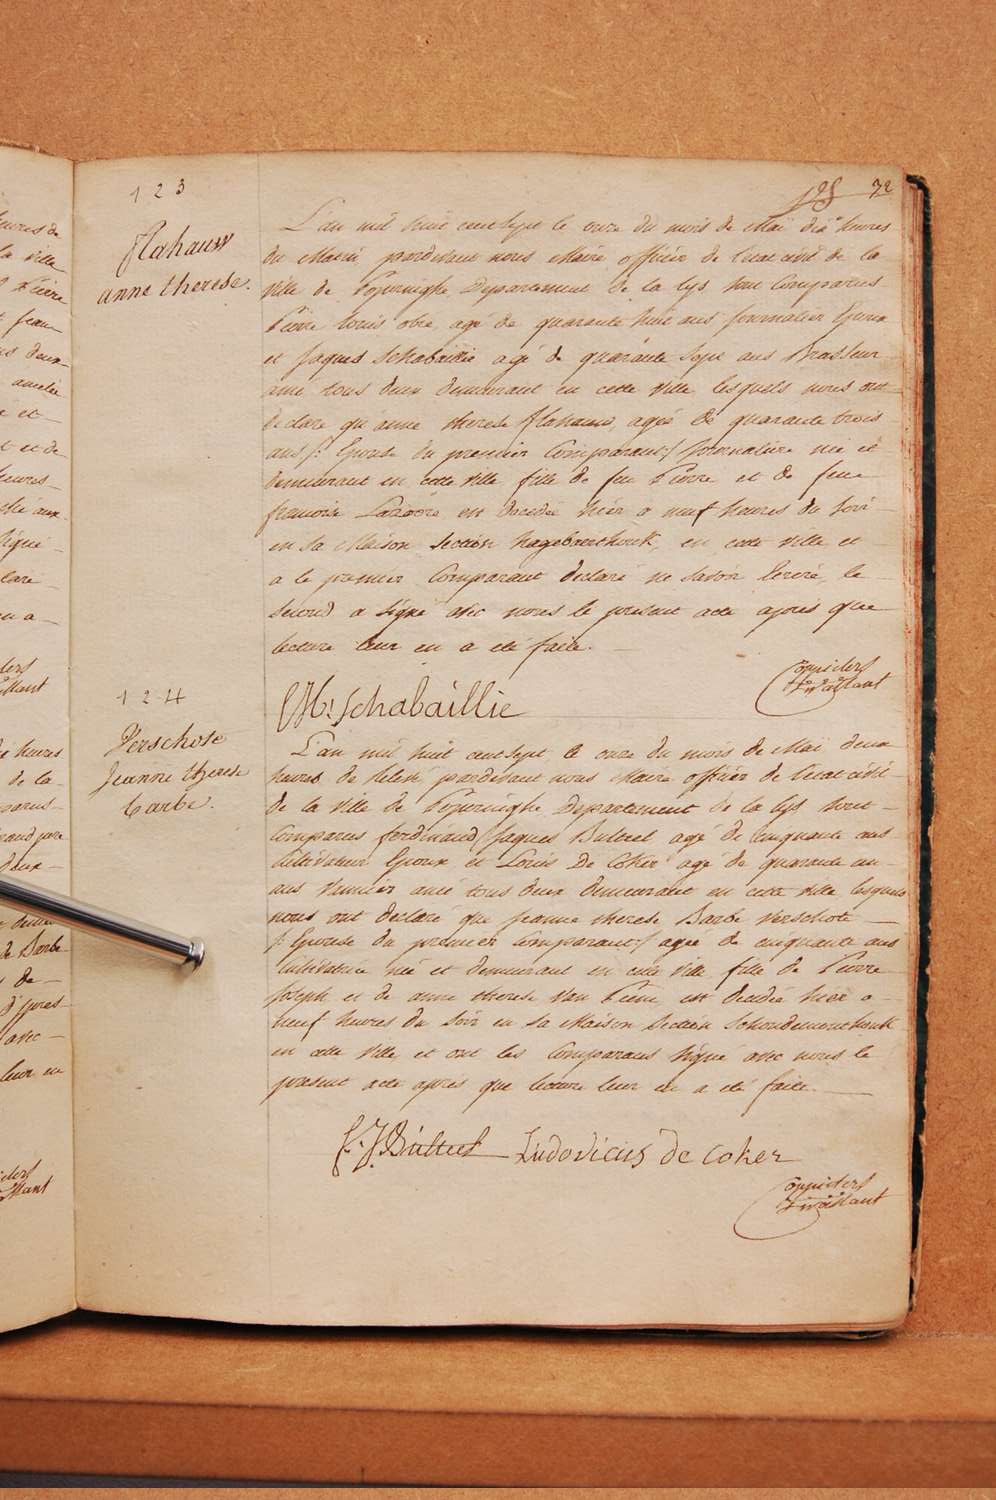 72
123
flahauw
anne therese.
L'an mil huit cent sept le onze du mois de Mai dix heures
du Matin pardevant nous Maire officier de l'etat civil de la
ville de Poperinghe Departement de la Lys sont Comparus
Pierre Louis obre, agé de quarante huit ans Journalier Epoux
et Jaques Schabaillie agé de quarante sept ans Brasseur
ami tous deux demeurant en cette ville lesquels nous ont
declare qu'anne therese flahauw, agée de quarante trois
ans /: Epouse du premier Comparant:/ Journaliere née et
demeurant en cette ville fille de feu Pierre et de feue
francoise est decedée hier a neuf heures du soir
en sa Maison Section hagebaerthouk, en cette ville et
a le premier Comparant declaré ne savoir ecrire, le
second a signé avec nous le present acte après que
lecture leur en a été faite.
M: Schabaillie
124
Verschote
Jeanne therese
barbe.
L'an mil huit cent sept, le onze du mois de Mai deux
heures de relevée, pardevant nous Maire officier de l'etat civil
de la ville de Poperinghe Departement de la Lys sont
Comparus ferdinand Jaques Bulteel agé de cinquante ans
Cultivateur Epoux et Louis De Coker agé de quarante un
ans ami tous deux demeurant en cette ville lesquels
nous ont declaré que Jeanne therese Barbe Verschote
/: Epouse du premier Comparant:/ agée de cinquante ans
Cultivatrice née et demeurant en cette ville fille de Pierre
Joseph et de anne therese Van est decedée hier a
neuf heures du soir en sa Maison Section Schoudemonthouk
en cette ville et ont les Comparans signé avec nous le
present acte après que lecture leur en a été faite.
F. J. Bulteel Ludovicus de Coker